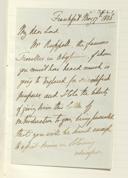 Frankfort Nov. 17th 1838
My dear Lord
Mr Ruppell, the famous
Traveller in Abyssinia, of whom
you must have heard much, is
going to England, for scientifical
purposes and I take the liberty
of giving him this letter of
introduction to you, being persuaded
that you will be kind enough
to assist him in obtaining